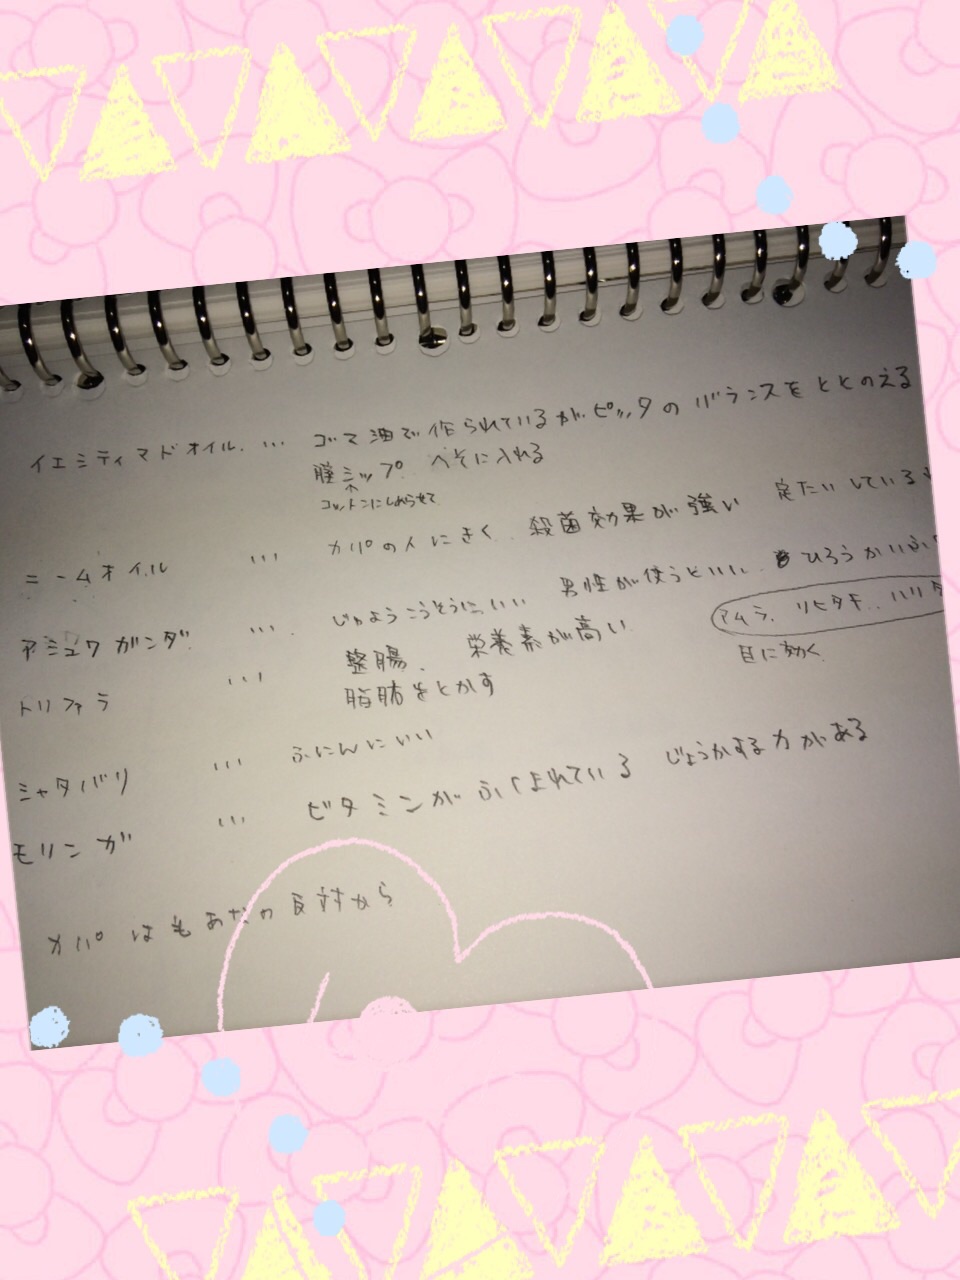 イエシティマドオイル … ゴマ油で作られているがピッタのバランスをととのえる
膣シップ へそに入れる
コットンにしめらせて
ニームオイル … カパの人にきく、殺菌効果が強い 定たいしている
アシュワガンダ … じようこうそうにいい 男性が使うといい、ひろうかいふ
トリファラ … 整腸、栄養素が高い アムラ、リヒタキ、ハリタ
脂肪をとかす 目に効く
シャタバリ … ふにんにいい
モリンガ … ビタミンがふくまれている じょうかする力がある
カパはもあなの反対から